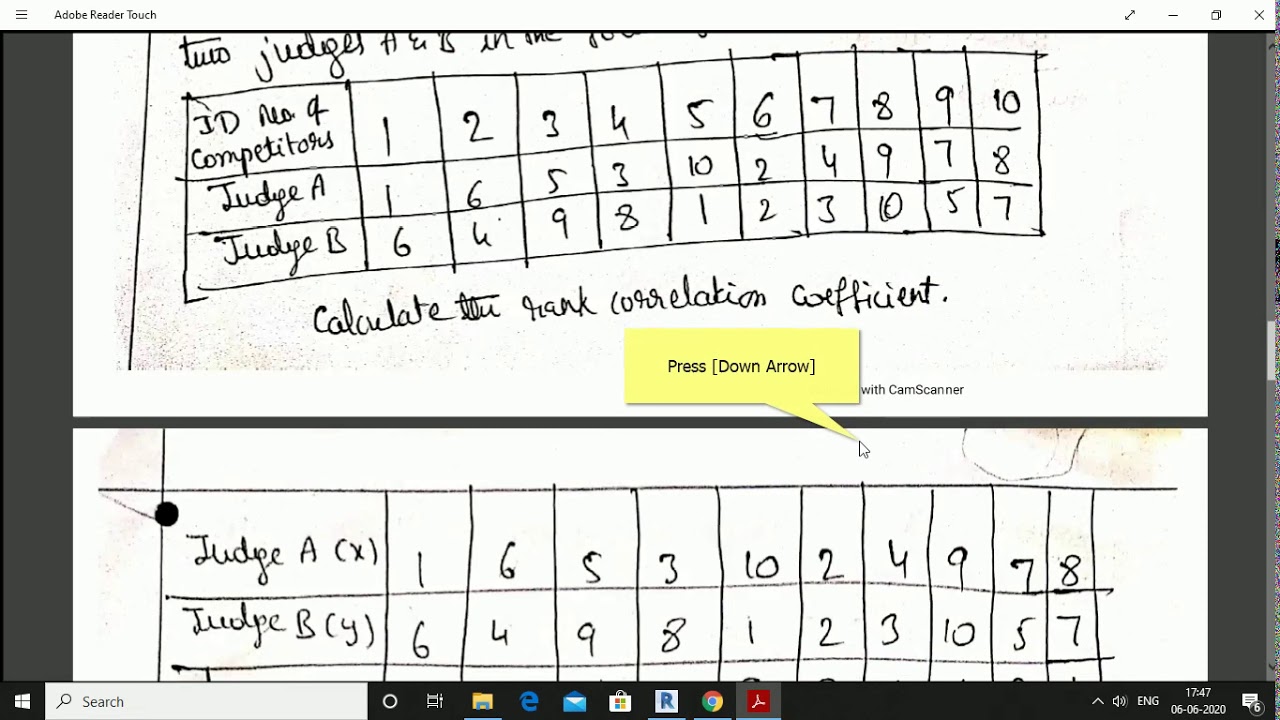 Adobe Reader Touch
two judges A & B in the
ID No. of 1 2 3 4 5 6 7 8 9 10
Competitors
Judge A 1 6 5 3 10 2 4 9 7 8
Judge B 6 4 9 8 1 2 3 10 5 7
Calculate the rank correlation coefficient.
Press [Down Arrow]
with CamScanner
Judge A (x) 1 6 5 3 10 2 4 9 7 8
Judge B (y) 6 4 9 8 1 2 3 10 5 7
Search
ENG
17:47
06-06-2020
6